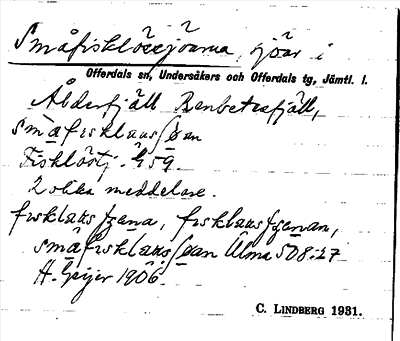 Småfisklössjöarna, sjöar i
Offerdals sn, Undersåkers och Offerdals tg, Jämtl. l.
Ålderfjäll Renbetesfjäll,
småfisklausʃøan
Fisklöstj. G 59.
2 olika meddelare.
fisklaustjena, fisklaustjenan,
småfisklausʃøan Ulma 508:27
H. Geijer 1906.
C. LINDBERG 1931.